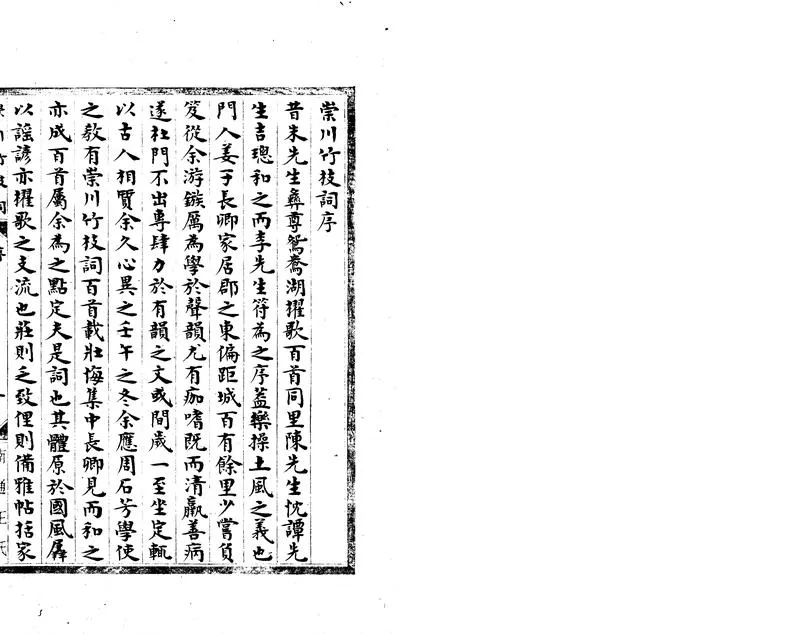 崇川竹枝詞序
昔朱先生彝尊鴛鴦湖擢歌百首同里陳先生忱譚先
生吉璁和之而李先生符為之序葢樂操土風之義也
門人姜子長卿家居郡之東偏距城百有餘里少嘗負
笈從余游鏃厲為學於聲韻尤有痂嗜既而清羸善病
遂杜門不出專肆力於有韻之文或間歲一至坐定輒
以古人相質余久心異之壬午之冬余應周石芳學使
之敎有崇川竹枝詞百首載壯悔集中長卿見而和之
亦成百首屬余為之點定夫是詞也其體原於國風孱
以謡諺亦擢歌之支流也莊則乏致俚則備雅帖括家
川竹枝詞
序
一
南通王氏